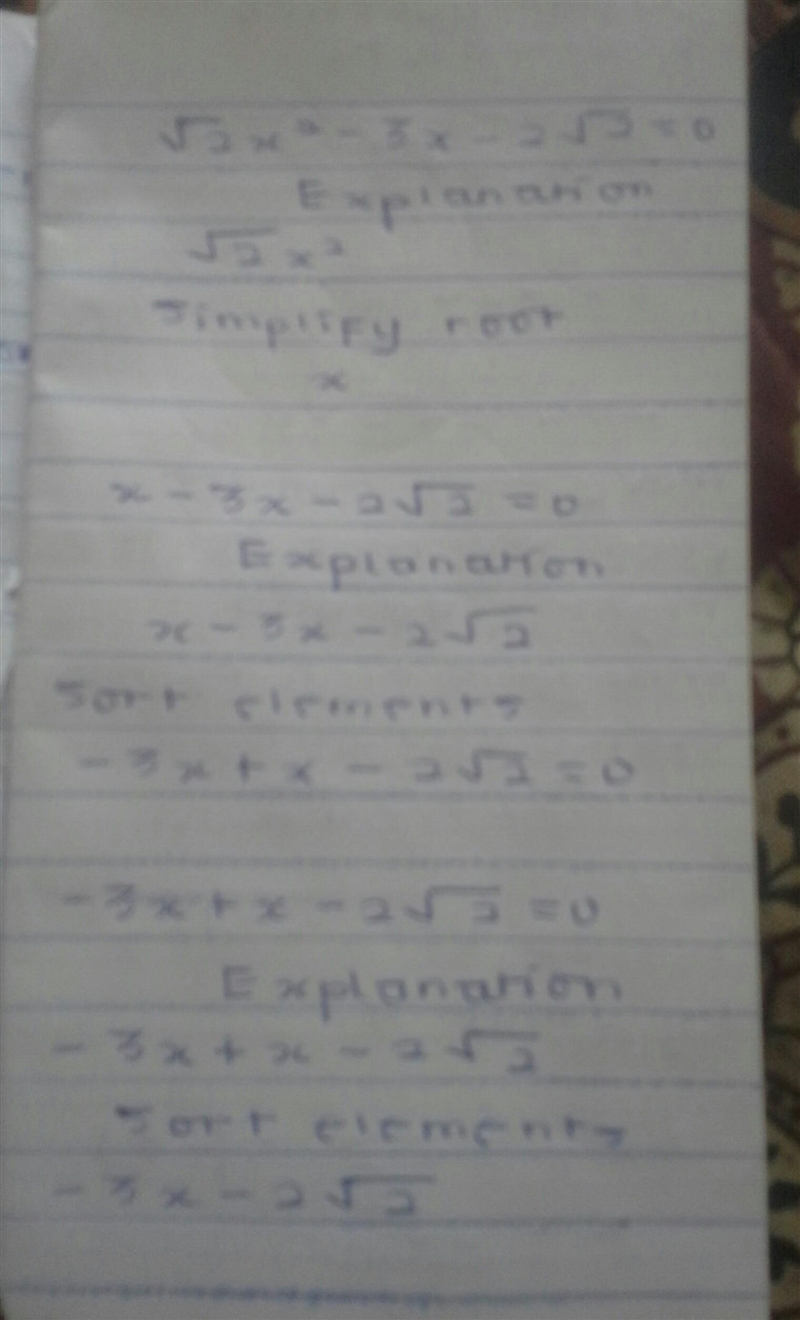 √2x² - 3x - 2√2 = 0
Explanation
√2x²
Simplify root
x
x - 3x - 2√2 = 0
Explanation
x - 3x - 2√2
Sort elements
- 3x + x - 2√2 = 0
- 3x + x - 2√2 = 0
Explanation
- 3x + x - 2√2
Sort elements
- 3x - 2√2